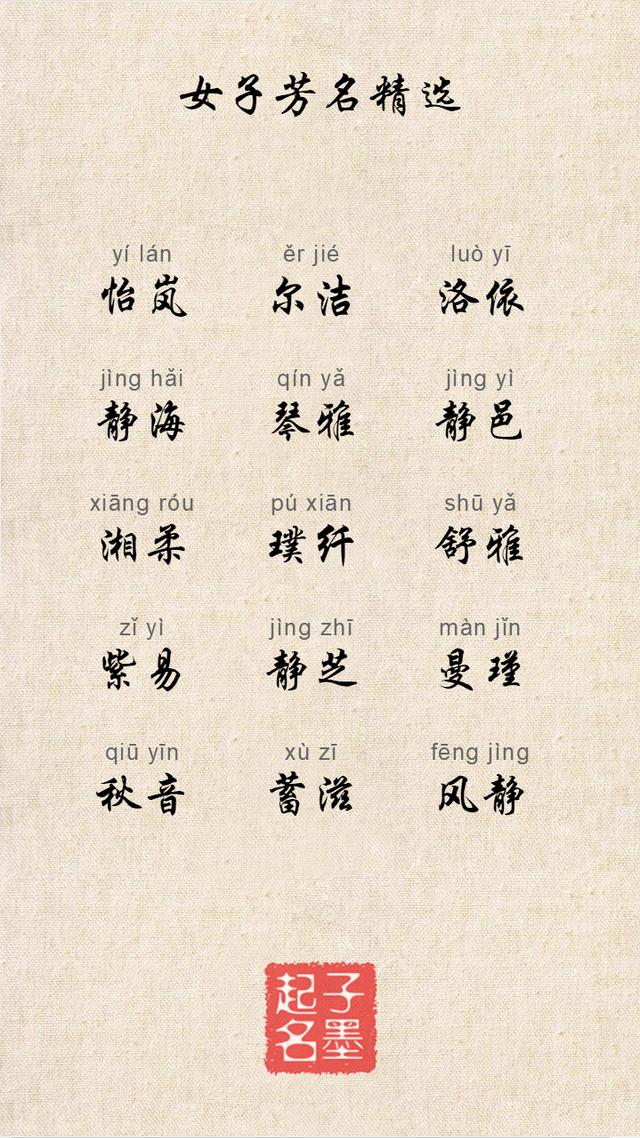 女子芳名精选
yí lán ěr jié luò yī
怡岚 尔洁 洛依
jìng hǎi qín yǎ jìng yì
静海 琴雅 静邑
xiāng róu pú xiān shū yǎ
湘柔 璞纤 舒雅
zǐ yì jìng zhī màn jǐn
紫易 静芝 曼瑾
qiū yīn xù zī fēng jìng
秋音 蓄滋 风静
子墨
起名